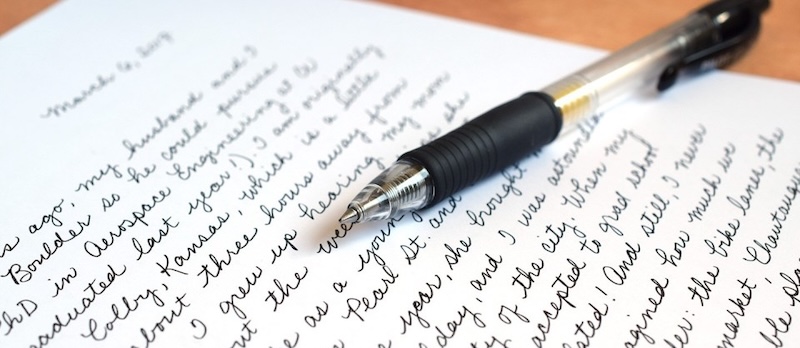 March 6, 2019
s ago, my husband and I
Boulder so he could pursue
PhD in Aerospace Engineering at CU
graduated last year!). I am originally
Colby, Kansas, which is a little
about three hours away from
I grew up hearing my mom
out the wee as she
e as a young
Pearl St. and
e year, she brought m
day, and I was astounded
y of the city. When my
accepted to grad school
ated! And still, I never
agined how much we
der: the bike lanes, the
market, Chautauqua
ble